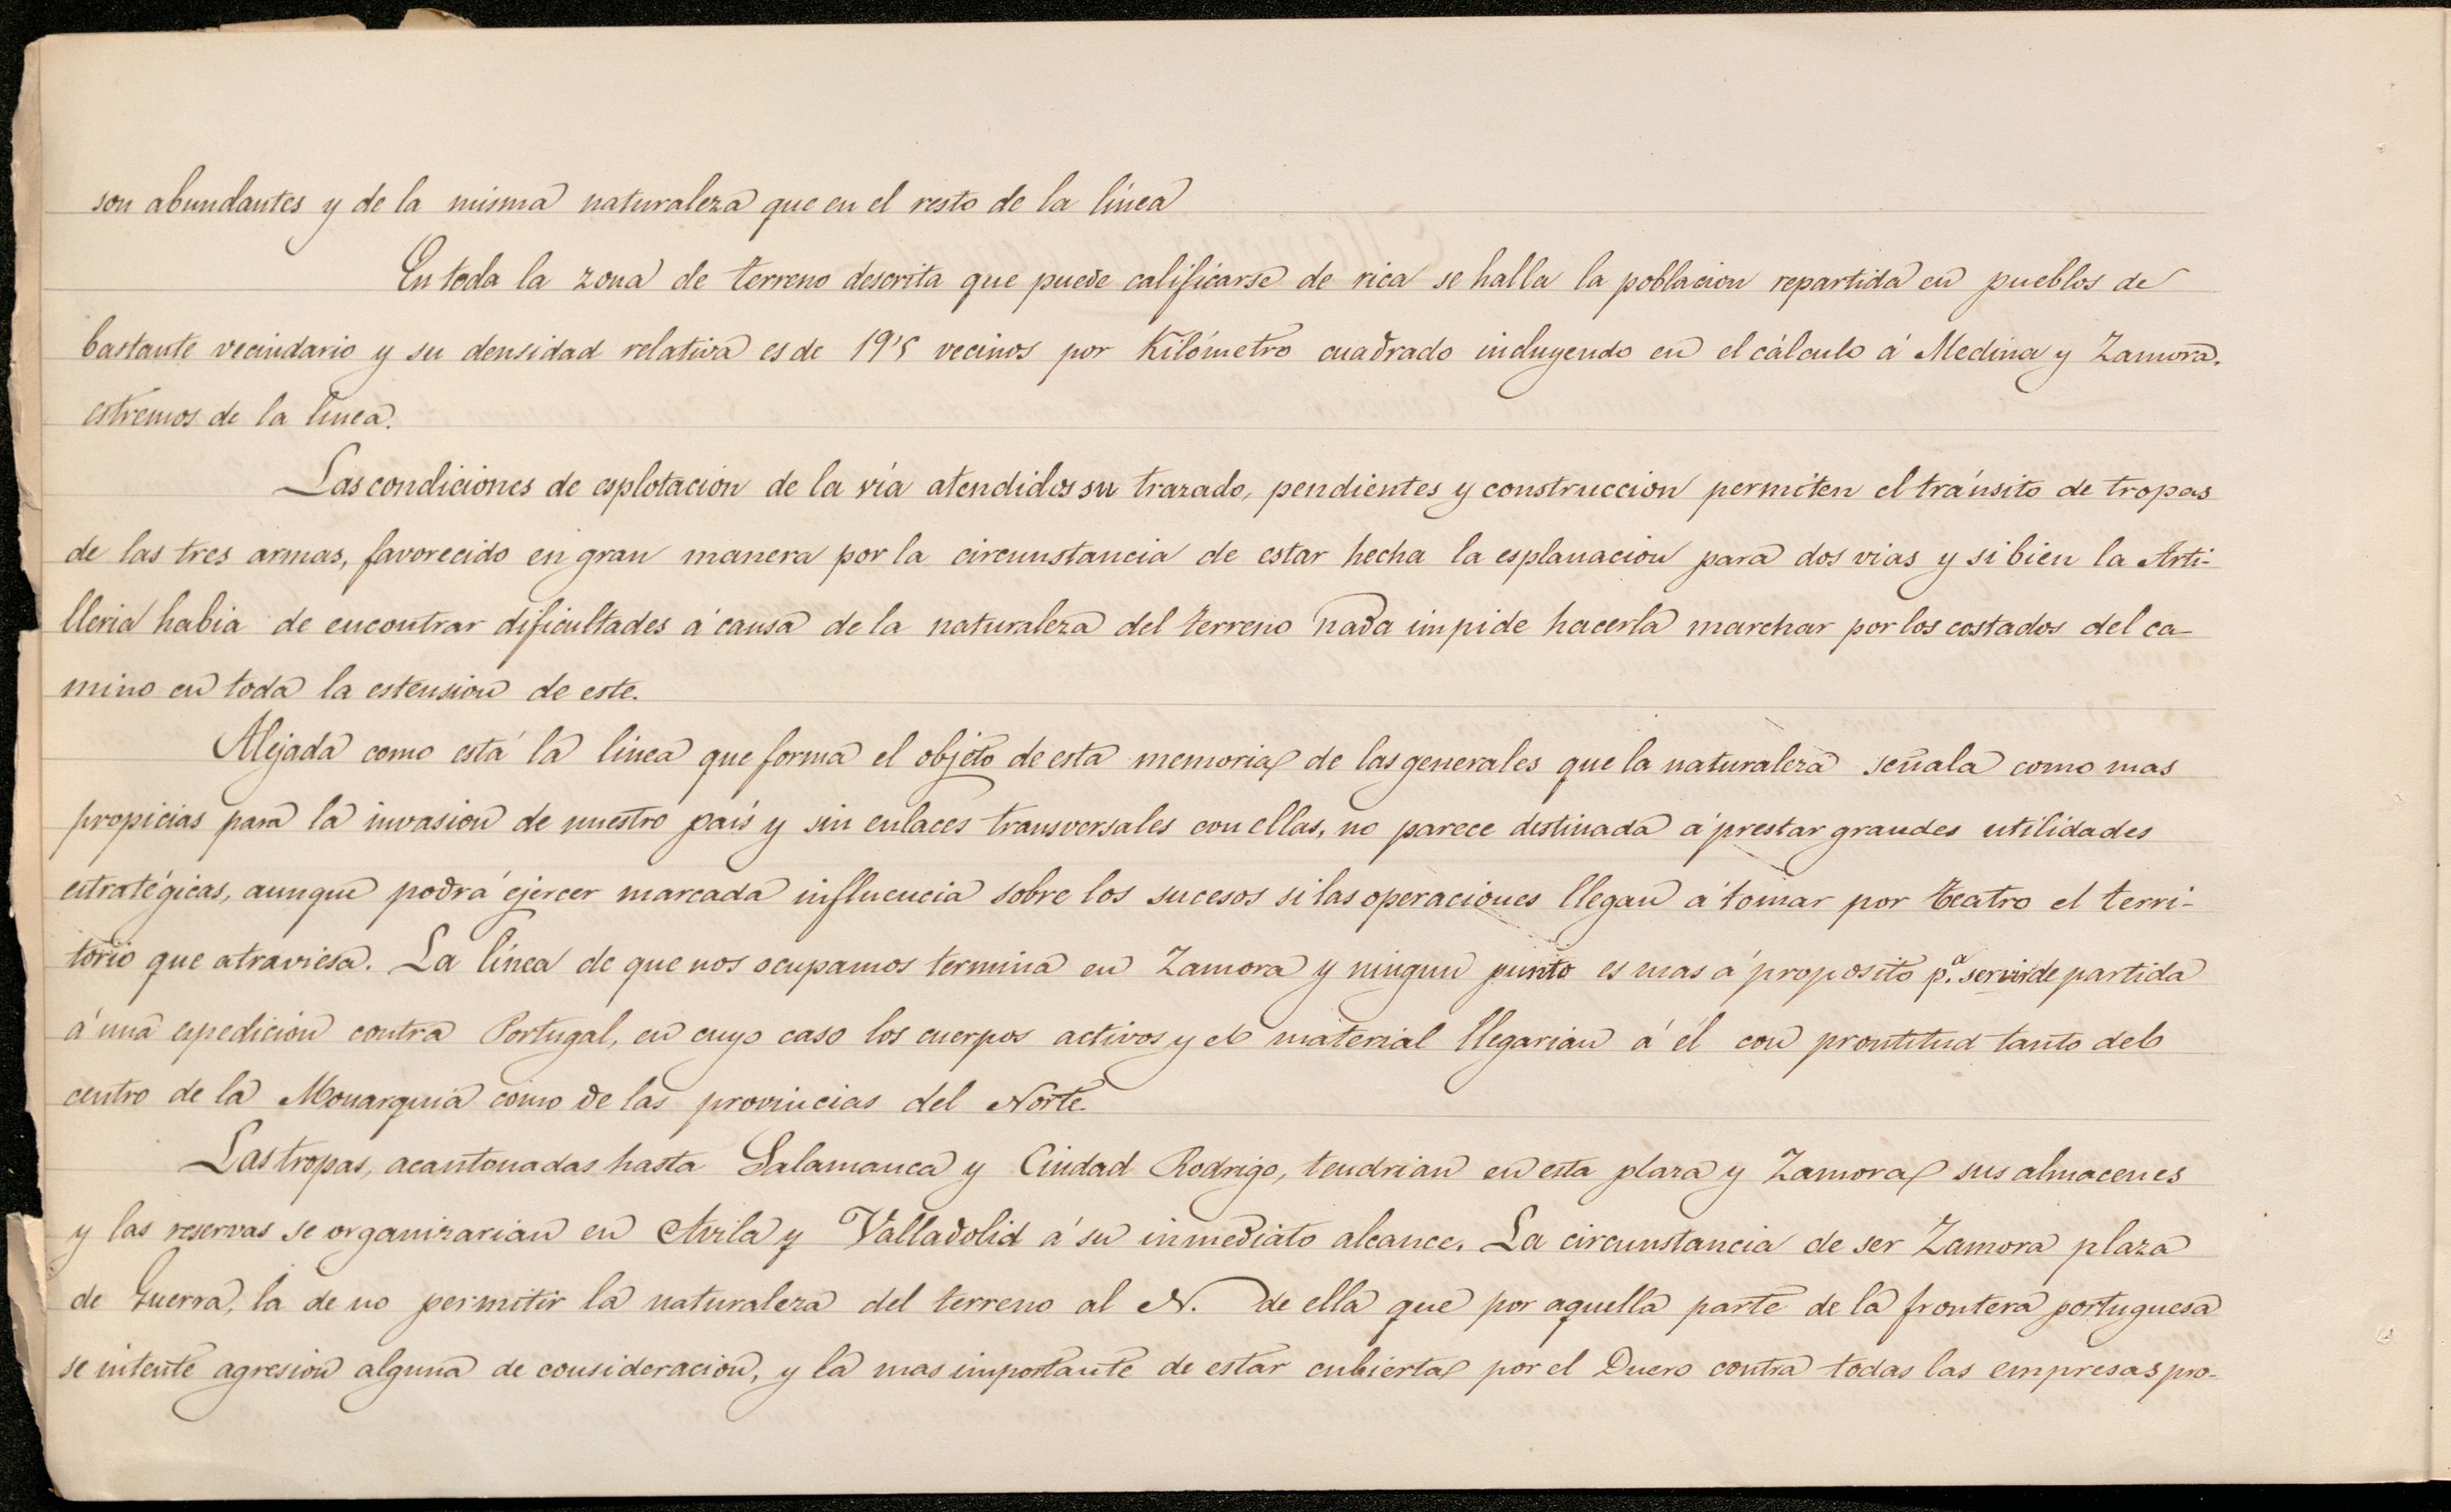 son abundantes y de la misma naturaleza que en el resto de la línea
En toda la zona de terreno descrita que puede calificarse de rica se halla la poblacion repartida en pueblos de
bastante vecindario y su densidad relativa es de 19'5 vecinos por Kilómetro cuadrado incluyendo en el cálculo á Medina y Zamora.
estremos de la linea.
Las condiciones de esplotacion de la vía atendidos su trazado, pendientes y construccion permiten el tránsito de tropas
de las tres armas, favorecido en gran manera por la circunstancia de estar hecha la esplanacion para dos vias y si bien la Arti-
lleria habia de encontrar dificultades á causa de la naturaleza del terreno nada impide hacerla marchar por los costados del ca-
mino en toda la estension de este.
Alejada como está la linea que forma el objeto de esta memoria de las generales que la naturaleza señala como mas
propicias para la invasion de nuestro país y sin enlaces transversales con ellas, no parece destinada á prestar grandes utilidades
estratégicas, aunque podrá ejercer marcada influencia sobre los sucesos si las operaciones llegan á tomar por teatro el terri-
torio que atraviesa. La línea de que nos ocupamos termina en Zamora y ningun punto es mas á proposito p.ª servir de partida
á una espedicion contra Portugal, en cuyo caso los cuerpos activos y el material llegarian á él con prontitud tanto del
centro de la Monarquia como de las provincias del Norte.
Las tropas, acantonadas hasta Salamanca y Ciudad Rodrigo, tendrian en esta plaza y Zamora sus almacenes
y las reservas se organizarian en Avila y Valladolid á su inmediato alcance. La circunstancia de ser Zamora plaza
de Guerra, la de no permitir la naturaleza del terreno al N. de ella que por aquella parte de la frontera portuguesa
se intente agresion alguna de consideracion, y la mas importante de estar cubierta por el Duero contra todas las empresas pro-